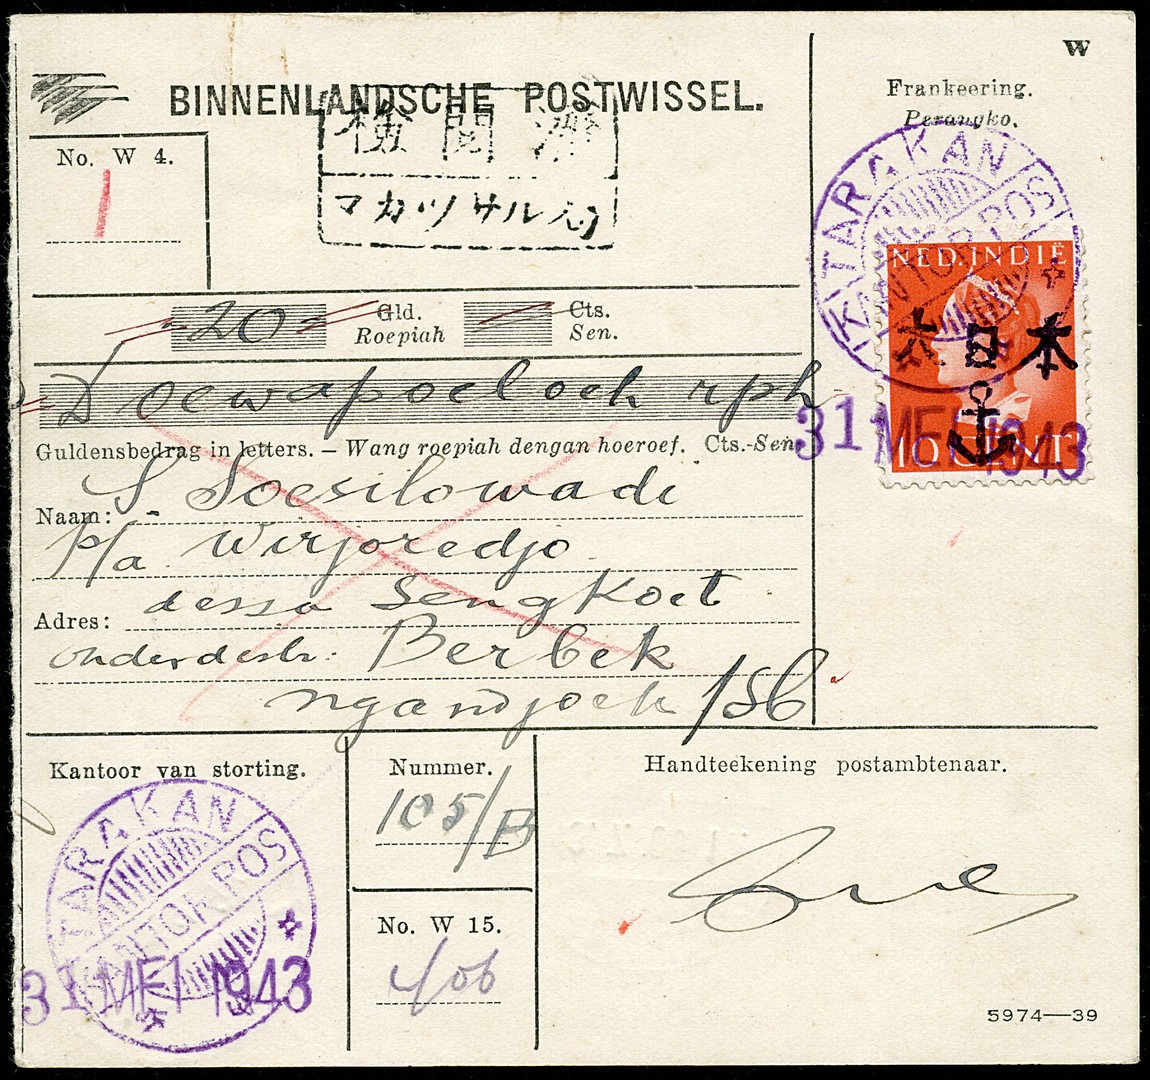 W
BINNENLANDSCHE POSTWISSEL.
検閲済
マカツサル
No. W 4.
1
Frankeering.
Perangko.
TARAKAN
KANTOR POS
NED. INDIË
大日本
10 CENT
31 MEI 1943
-20- Gld. Cts.
Roepiah Sen.
Doewapoeloeh rph
Guldensbedrag in letters. – Wang roepiah dengan hoeroef. Cts.-Sen
Naam: S. Soesilowadi
p/a Wirjoredjo
Adres: dessa Sengkoet
onderdistr: Berbek
ngandjoek /Sb
Kantoor van storting.
TARAKAN
KANTOR POS
31 MEI 1943
Nummer.
105/B
No. W 15.
406
Handteekening postambtenaar.
5974—39